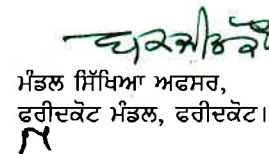 ਮੰਡਲ ਸਿੱਖਿਆ ਅਫਸਰ,
ਫਰੀਦਕੋਟ ਮੰਡਲ, ਫਰੀਦਕੋਟ।